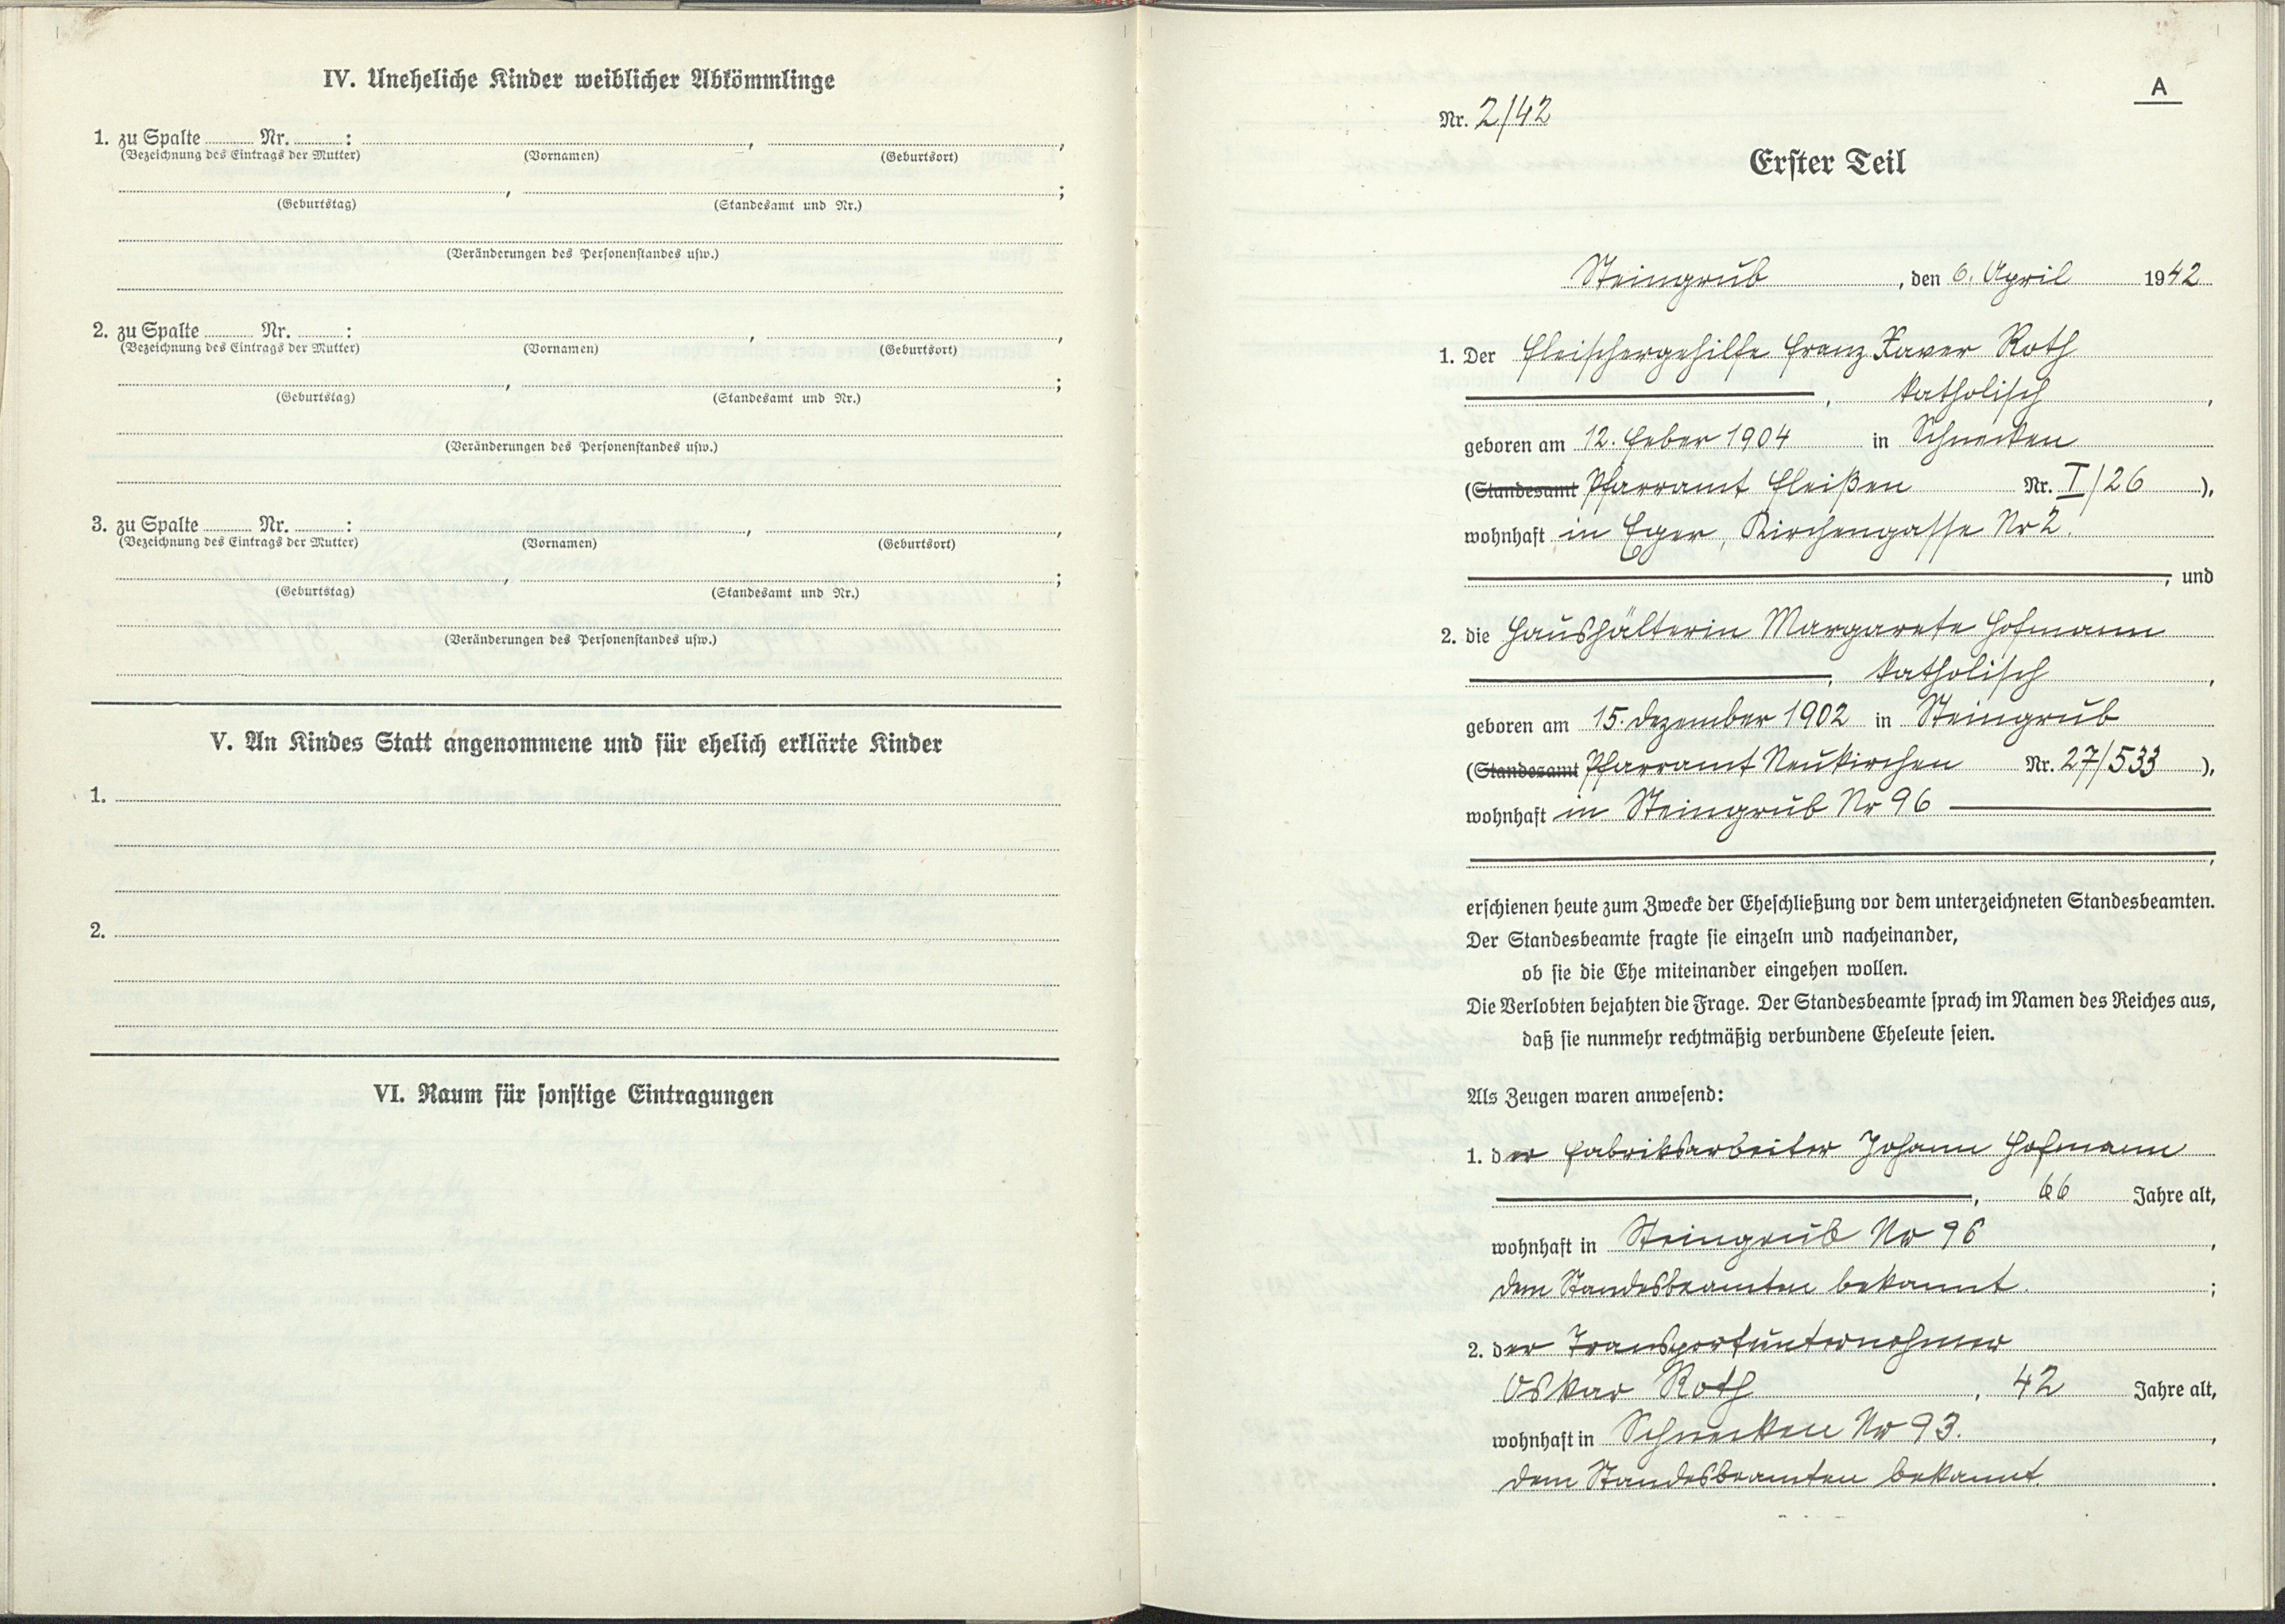 IV. Uneheliche Kinder weiblicher Abkömmlinge
1. zu Spalte ........ Nr. ........ : , ,
(Bezeichnung des Eintrags der Mutter) (Vornamen) (Geburtsort)
, ;
(Geburtstag) (Standesamt und Nr.)
(Veränderungen des Personenstandes usw.)
2. zu Spalte ........ Nr. ........ : , ,
(Bezeichnung des Eintrags der Mutter) (Vornamen) (Geburtsort)
, ;
(Geburtstag) (Standesamt und Nr.)
(Veränderungen des Personenstandes usw.)
3. zu Spalte ........ Nr. ........ : , ,
(Bezeichnung des Eintrags der Mutter) (Vornamen) (Geburtsort)
, ;
(Geburtstag) (Standesamt und Nr.)
(Veränderungen des Personenstandes usw.)
V. An Kindes Statt angenommene und für ehelich erklärte Kinder
1.
2.
VI. Raum für sonstige Eintragungen
A
Nr. 2/42
Erster Teil
Steingrub, den 6. April 1942
1. Der Fleischergehilfe Franz Xaver Roth
, katholisch ,
geboren am 12. Feber 1904 in Schnecken
(Standesamt Pfarramt Fleißen Nr. I/26 ),
wohnhaft in Eger, Kirchengasse Nr 2.
, und
2. die Haushälterin Margarete Hofmann
, katholisch ,
geboren am 15. Dezember 1902 in Steingrub
(Standesamt Pfarramt Neukirchen Nr. 27/533 ),
wohnhaft in Steingrub Nr 96
,
erschienen heute zum Zwecke der Eheschließung vor dem unterzeichneten Standesbeamten.
Der Standesbeamte fragte sie einzeln und nacheinander,
ob sie die Ehe miteinander eingehen wollen.
Die Verlobten bejahten die Frage. Der Standesbeamte sprach im Namen des Reiches aus,
daß sie nunmehr rechtmäßig verbundene Eheleute seien.
Als Zeugen waren anwesend:
1. der Fabriksarbeiter Johann Hofmann
, 66 Jahre alt,
wohnhaft in Steingrub Nr 96 ,
dem Standesbeamten bekannt. ;
2. der Transportunternehmer
Oskar Roth , 42 Jahre alt,
wohnhaft in Schnecken Nr 93. ,
dem Standesbeamten bekannt. .